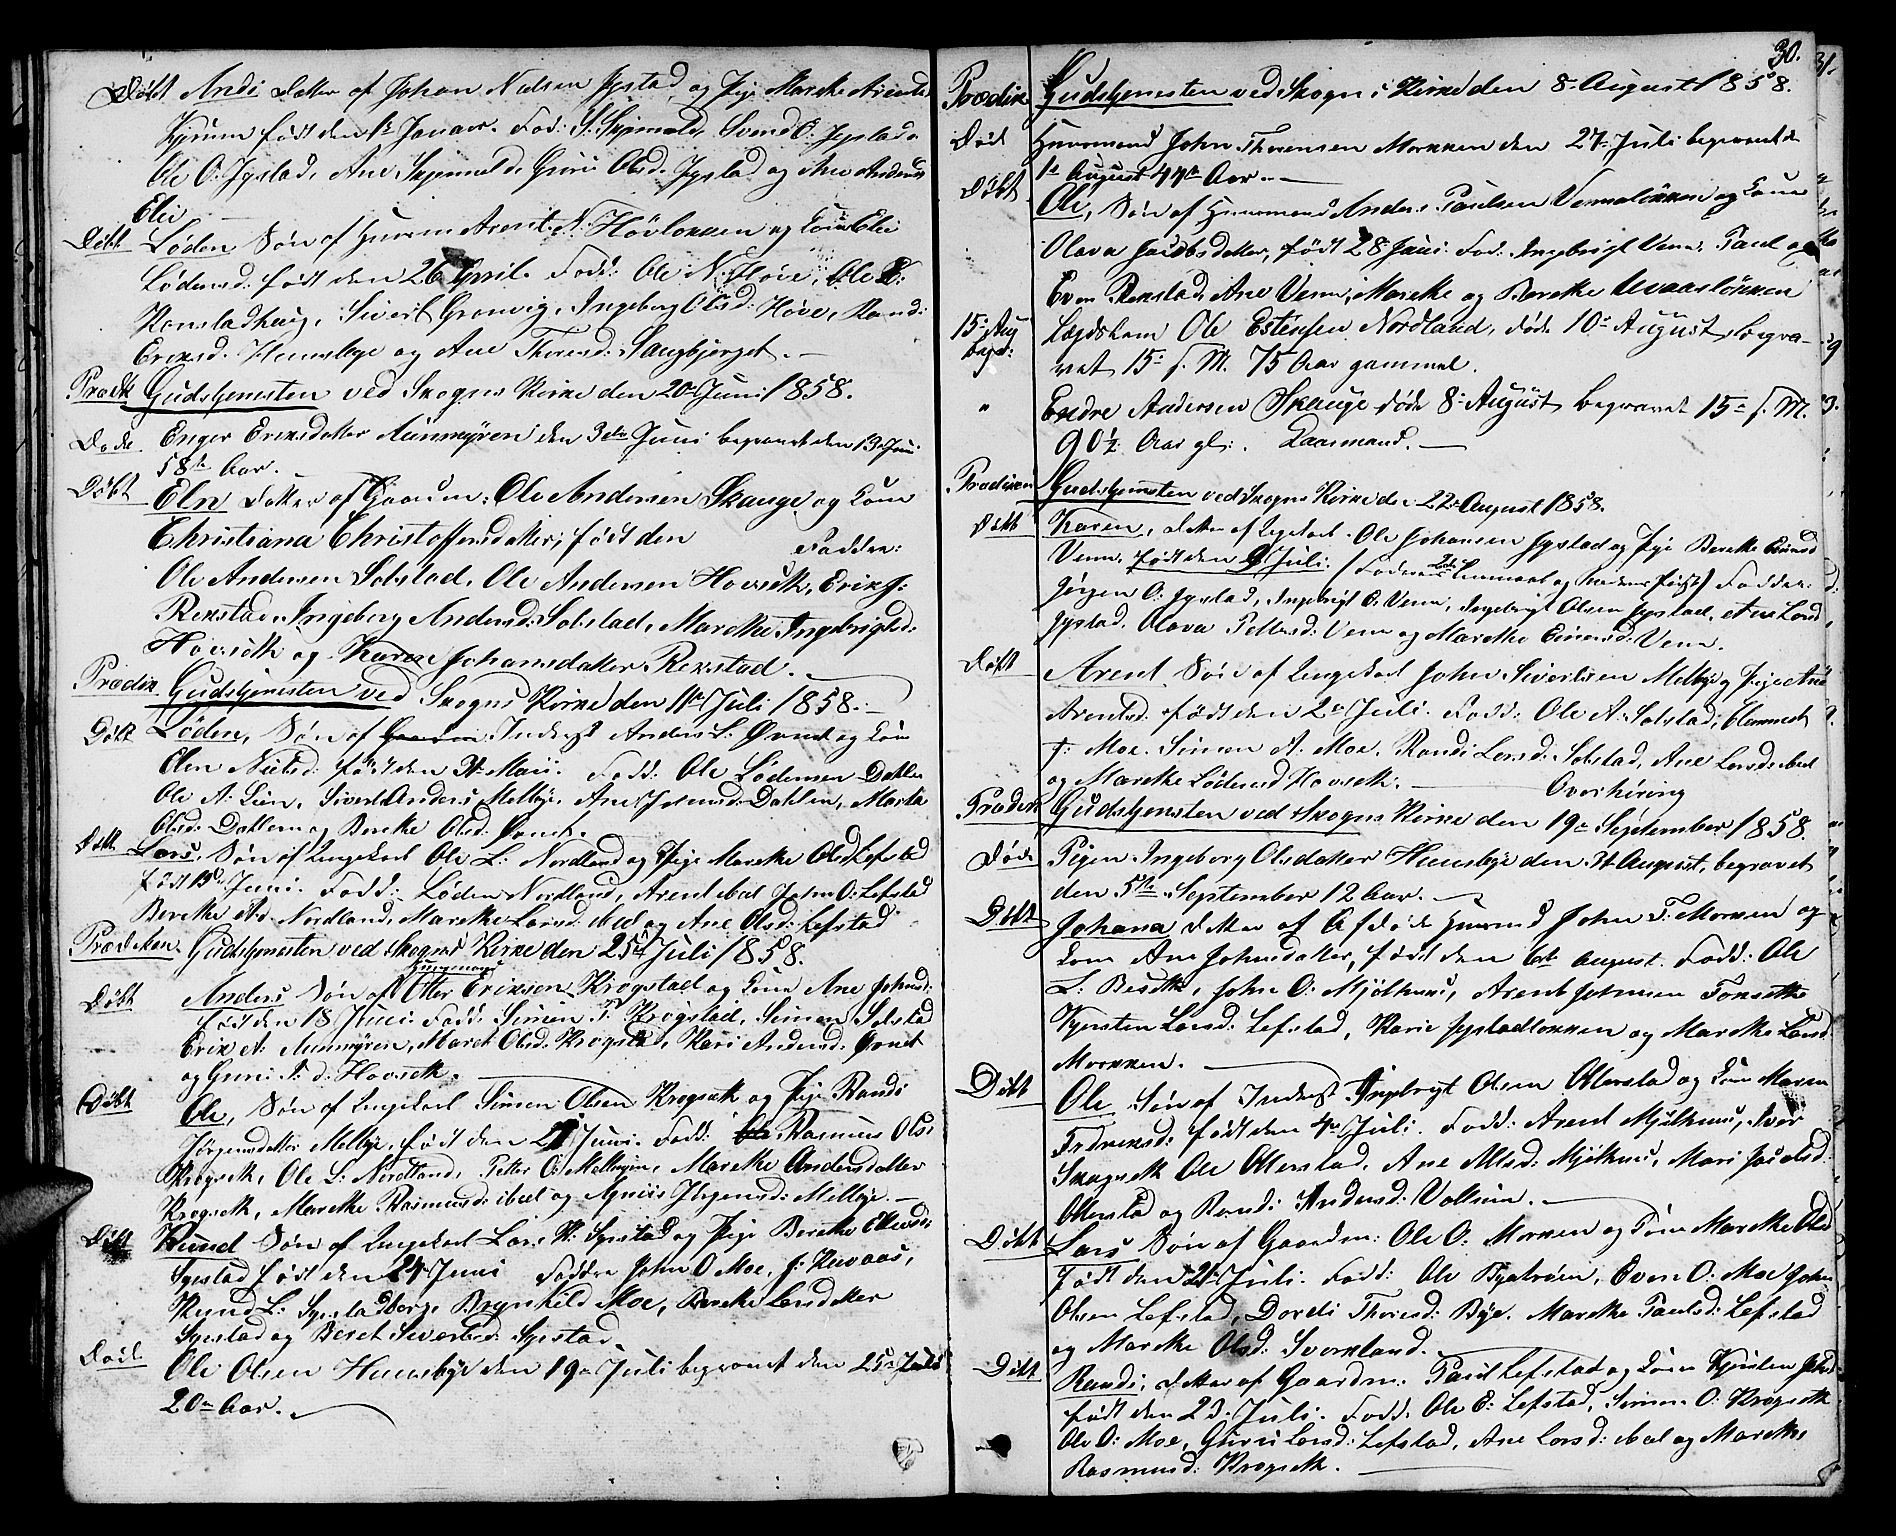 Døbt Andi Datter af Johan Nielsen Jystad og Pige Marethe Arentsd
Kjerem født den 1te Januar. Fad: S. Skjemald, Svend O: Jystad
Ole O: Jystad, Ane Skjemald, Guru Olsd. Jystad og Ane Andersd
Elie
Døbt Løden Søn af Huusm Arent N: Høvlokken og Kone Eli
Lødensd: født den 26 April. Fadd: Ole N: Høve, Ole E:
Konstadhaug, Sivert Gronvig, Ingeborg Olsd: Høve, Randi
Eriksd. Huusbye og Ane Thoresd: Haugbjerget.
Prædik Gudstjenesten ved Skogns Kirke den 20de Juni 1858.
Døde Enger Eriksdatter Aunmyren den 3die Juni begravet den 13de Juni
58te Aar.
Døbt Eln Datter af Gaardm: Ole Andersen Skauge og Kone
Christiana Christoffersdatter, født den Faddere:
Ole Andersen Solstad, Ole Andersen Hovseth, Erik J:
Rekstad, Ingeborg Andersd: Solstad, Marethe Ingebrigtsd:
Hovseth og Karen Johansdatter Rekstad.
Prædik Gudstjenesten ved Skogns Kirke den 11te Juli 1858.
Døbt Løden, Søn af Inderst Anders L: Øvnd og Kone
Elen Nielsd: født den 31te Maii. Fadd: Ole Lødensen Dahlen
Ole A: Lien, Sivert Anders Melbye, Ane Johnsd: Dahlen, Marta
Olsd: Dahlen og Berethe Olsd: Øvnd.
Døbt Lars, Søn af Ungekarl Ole L: Nordland og Pige Marethe Olsd Lefstad
født 15de Juni. Fadd: Løden Nordland, Arent ibid John O: Lefstad
Berethe And. Nordland, Marethe Larsd: ibid og Ane Olsd: Lefstad
Prædeken Gudstjenesten ved Skogns Kirke den 25de Juli 1858.
Huusmand
Døbt Anders Søn af Otter Eriksen Krogstad og Kone Ane Johnsd:
født den 18 Juni. Fadd: Simen P: Krogstad, Simen Solstad
Erik A: Aunmyren, Maret Olsd: Krogstad, Kari Andersd: Øvnd
og Guru A: d: Hovseth.
Døbt Ole, Søn af Ungekarl Simen Olsen Krogseth og Pige Randi
Jørgensdatter Melbye, født den 21 Juni. Fadd: Rasmus Ols:
Krogseth, Ole L: Nordland, Petter O: Melbyen, Marethe Andersdatter
Krogseth, Marethe Rasmusd: ibid og Agniis Jørgensd: Melbye.
Døbt Knud Søn af Ungekarl Lars K: Syrstad og Pige Berethe Ellevsd:
Syrstad født den 24 Juni Faddre John O Moe, J: Kuvaas,
Knud L: Syrstadberg, Brynhild Moe, Berethe Larsdatter
Syrstad og Beret Sivertsd: Syrstad
Død. Ole Olsen Huusbye den 19de Juli begravet den 25de Juli
20de Aar.
30.
31.
Prædik Gudstjenesten ved Skogns Kirke den 8de August 1858.
Død Huusmand John Thoresen Morken den 27de Juli begravet d.
1te August 44de Aar.
Døbt Ole, Søn af Huusmand Anders Paulsen Vennaløkken og Kone
Olava Jacobsdatter, født 28 Juni. Fad: Ingebrigt Venn, Paul og
Even Rekstad, Ane Venn, Marethe og Berethe Uvaasløkken
15de Aug Lægdslem Ole Estensen Nordland, døde 10de August, begra-
begr: vet 15de s. M. 75 Aar gammel.
" Endre Andersen Skauge døde 8de August begravet 15de s. M.
90½ Aar gl: Laasmand.
Prædiken Gudstjensten ved Skogns Kirke den 22de August 1858.
Døbt Karen, Datter af Ungekarl Ole Johansen Jystad og Pige Berethe Einersd
Venn, født den 9 Juli. Fadder:
Jørgen O: Jystad, Ingebrigt E: Venn, Ingebrigt Olsen Jystad, Ane Larsd
Jystad, Olava Pettersd: Venn og Marethe Einersd: Venn.
Døbt Arent Søn af Ungekarl John Sivertsen Melbye og Pige Ane
Arentsd: født den 2de Juli. Fadd: Ole A: Solstad, Clemmet
J: Moe. Simen A. Moe. Randi Larsd: Solstad, Ane Larsd: ibid
og Marethe Lødensd Hovseth. Overhøring
Prædik Gudstjensten ved Skogns Kirke den 19de September 1858.
Død. Pigen Ingeborg Olsdatter Huusbye den 31te August, begravet
den 5te September 12 Aar.
Døbt Johana Datter af Afdøde Huusmd John T. Morken og
Kone Ane Johnsdatter, født den 6te August. Fadd: Ole
L: Beseth, John O: Mjølhuus, Arent Johnsen Tonseth
Kjersten Larsd: Lefstad, Karie Jystadlokken og Marethe Larsd
Morken.
Døbt Ole Søn af Inderst Ingebrigt Olsen Olterstad og Kone Maren
Fredriksd: født den 4de Juli. Fadd: Arent Mjølhuus, Iver
Skogseth Ole Olterstad, Ane Olsd: Mjølhuus, Mari Jacobsd:
Olterstad og Randi Andersd: Volseim.
Døbt Lars Søn af Gaardm: Ole O: Morken og Kone Marethe Olsd
født den 21 Juli. Fadd: Ole Byatrøen, Even O: Moe John
Olsen Lefstad, Dordi Thoresd: Bye. Marethe Paulsd: Lefstad
og Marethe Olsd: Svorkland.
Døbt Randi, Datter af Gaardm. Paul Lefstad og Kone Kjersten Johsd:
født den 23. Juli. Fadd: Ole E: Lefstad, Simen O: Krogseth
Ole O: Moe, Guru Larsd: Lefstad, Ane Larsd: ibid og Marethe
Rasmusd: Krogseth.